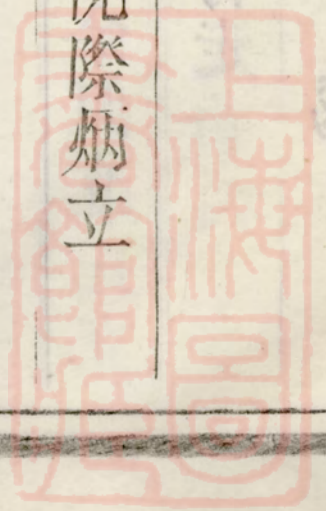 際炳立
上海圖
書館藏